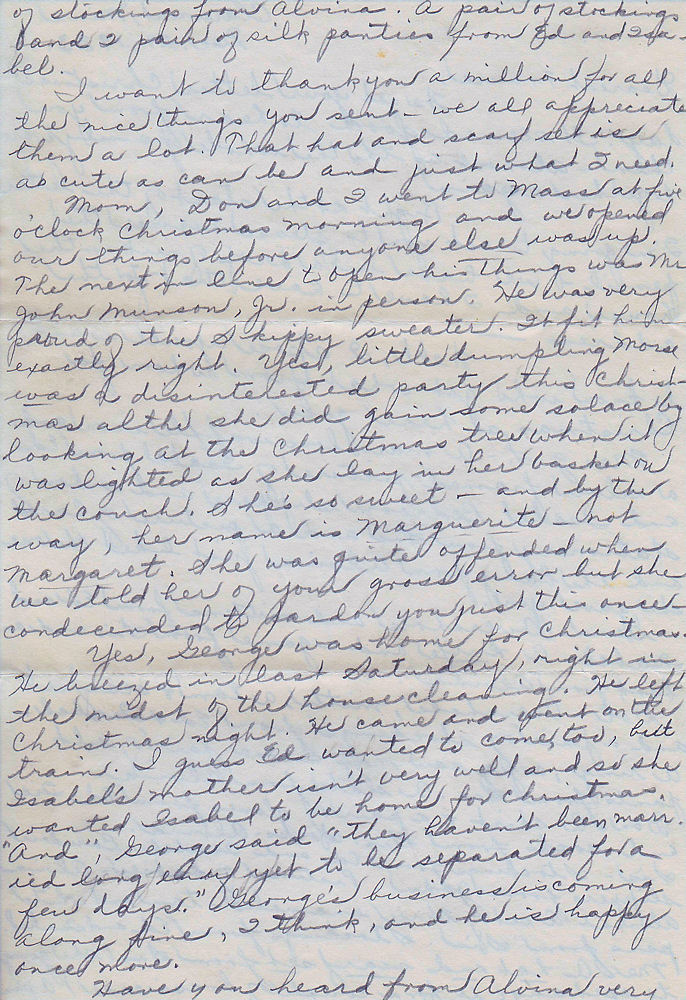 of stockings from Alvina. A pair of stockings
and 2 pair of silk panties from Ed and Isa-
bel.
I want to thank you a million for all
the nice things you sent - we all appreciate
them a lot. That hat and scarf set is
as cute as can be and just what I need.
Mom, Don and I went to Mass at five
o'clock Christmas morning and we opened
our things before anyone else was up.
The next in line to open his things was Mr
John Munson, Jr. in person. He was very
proud of the Skippy sweater. It fit him
exactly right. Yes, little dumpling Morse
was a disinterested party this Christ-
mas altho she did gain some solace by
looking at the Christmas tree when it
was lighted as she lay in her basket on
the couch. She's so sweet - and by the
way, her name is Marguerite - not
Margaret. She was quite offended when
we told her of your gross error but she
condecended to pardon you just this once -
Yes, George was home for Christmas.
He breezed in last Saturday, right in
the midst of the housecleaning. He left
Christmas night. He came and went on the
train. I guess Ed wanted to come, too, but
Isabel's mother isn't very well and so she
wanted Isabel to be home for Christmas.
"And", George said "they haven't been marr-
ied long enuf yet to be separated for a
few days." George's business is coming
along fine, I think, and he is happy
once more.
Have you heard from Alvina very